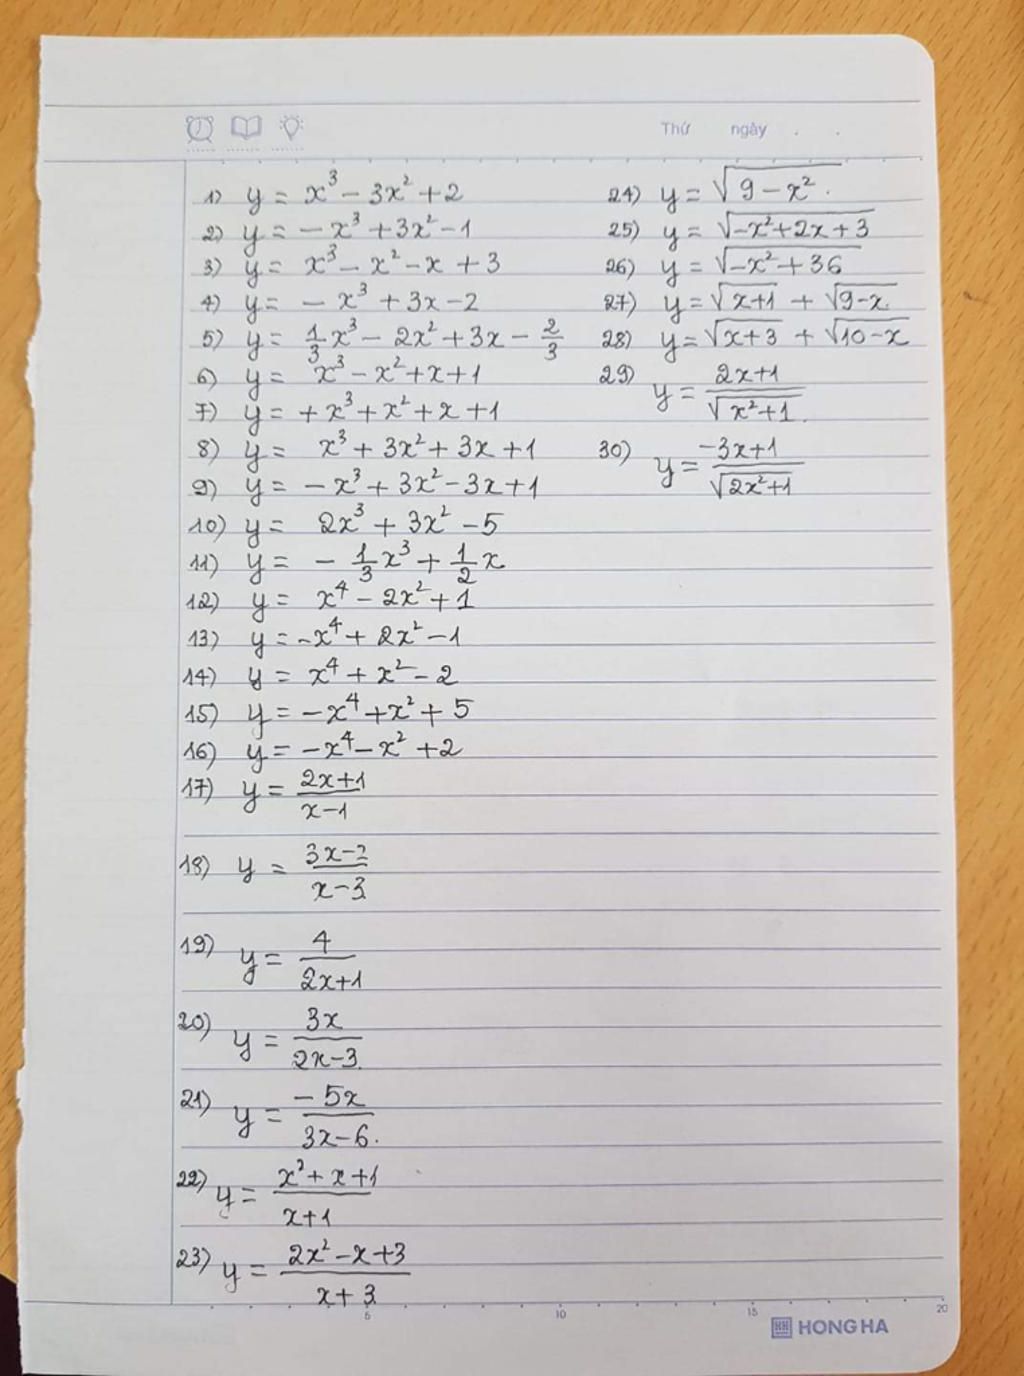 Thứ ngày . .
1) y = x³ - 3x² + 2
2) y = - x³ + 3x² - 1
3) y = x³ - x² - x + 3
4) y = - x³ + 3x - 2
5) y = 1/3 x³ - 2x² + 3x - 2/3
6) y = x³ - x² + x + 1
7) y = + x³ + x² + x + 1
8) y = x³ + 3x² + 3x + 1
9) y = - x³ + 3x² - 3x + 1
10) y = 2x³ + 3x² - 5
11) y = - 1/3 x³ + 1/2 x
12) y = x⁴ - 2x² + 1
13) y = -x⁴ + 2x² - 1
14) y = x⁴ + x² - 2
15) y = -x⁴ + x² + 5
16) y = -x⁴ - x² + 2
17) y = (2x+1)/(x-1)
18) y = (3x-2)/(x-3)
19) y = 4/(2x+1)
20) y = 3x/(2x-3)
21) y = -5x/(3x-6)
22) y = (x² + x + 1)/(x+1)
23) y = (2x² - x + 3)/(x+3)
24) y = √(9 - x²)
25) y = √(-x² + 2x + 3)
26) y = √(-x² + 36)
27) y = √(x+1) + √(9-x)
28) y = √(x+3) + √(10-x)
29) y = (2x+1)/√(x²+1)
30) y = (-3x+1)/√(2x²+1)
5 10 15 20
HH HONG HA